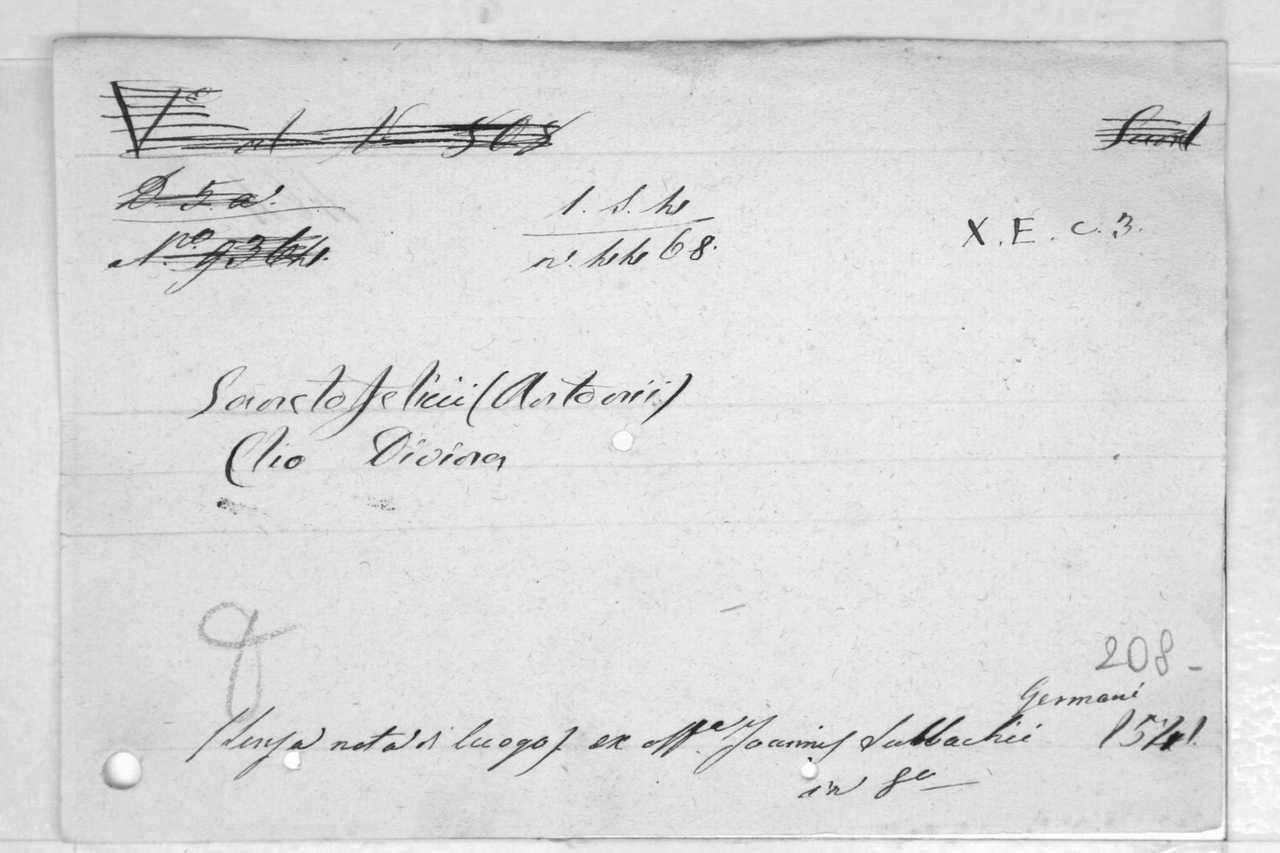 V.e
505
Sanct
D. 5. a.
1. S. 4
X. E. c. 3.
N.ro 93644.
n. 4468.
Sanctofelicii (Antonii)
Clio Divina
208-
Germani
(senza nota di luogo) ex off.a Joannis Sultzbachii 1541.
in 8°